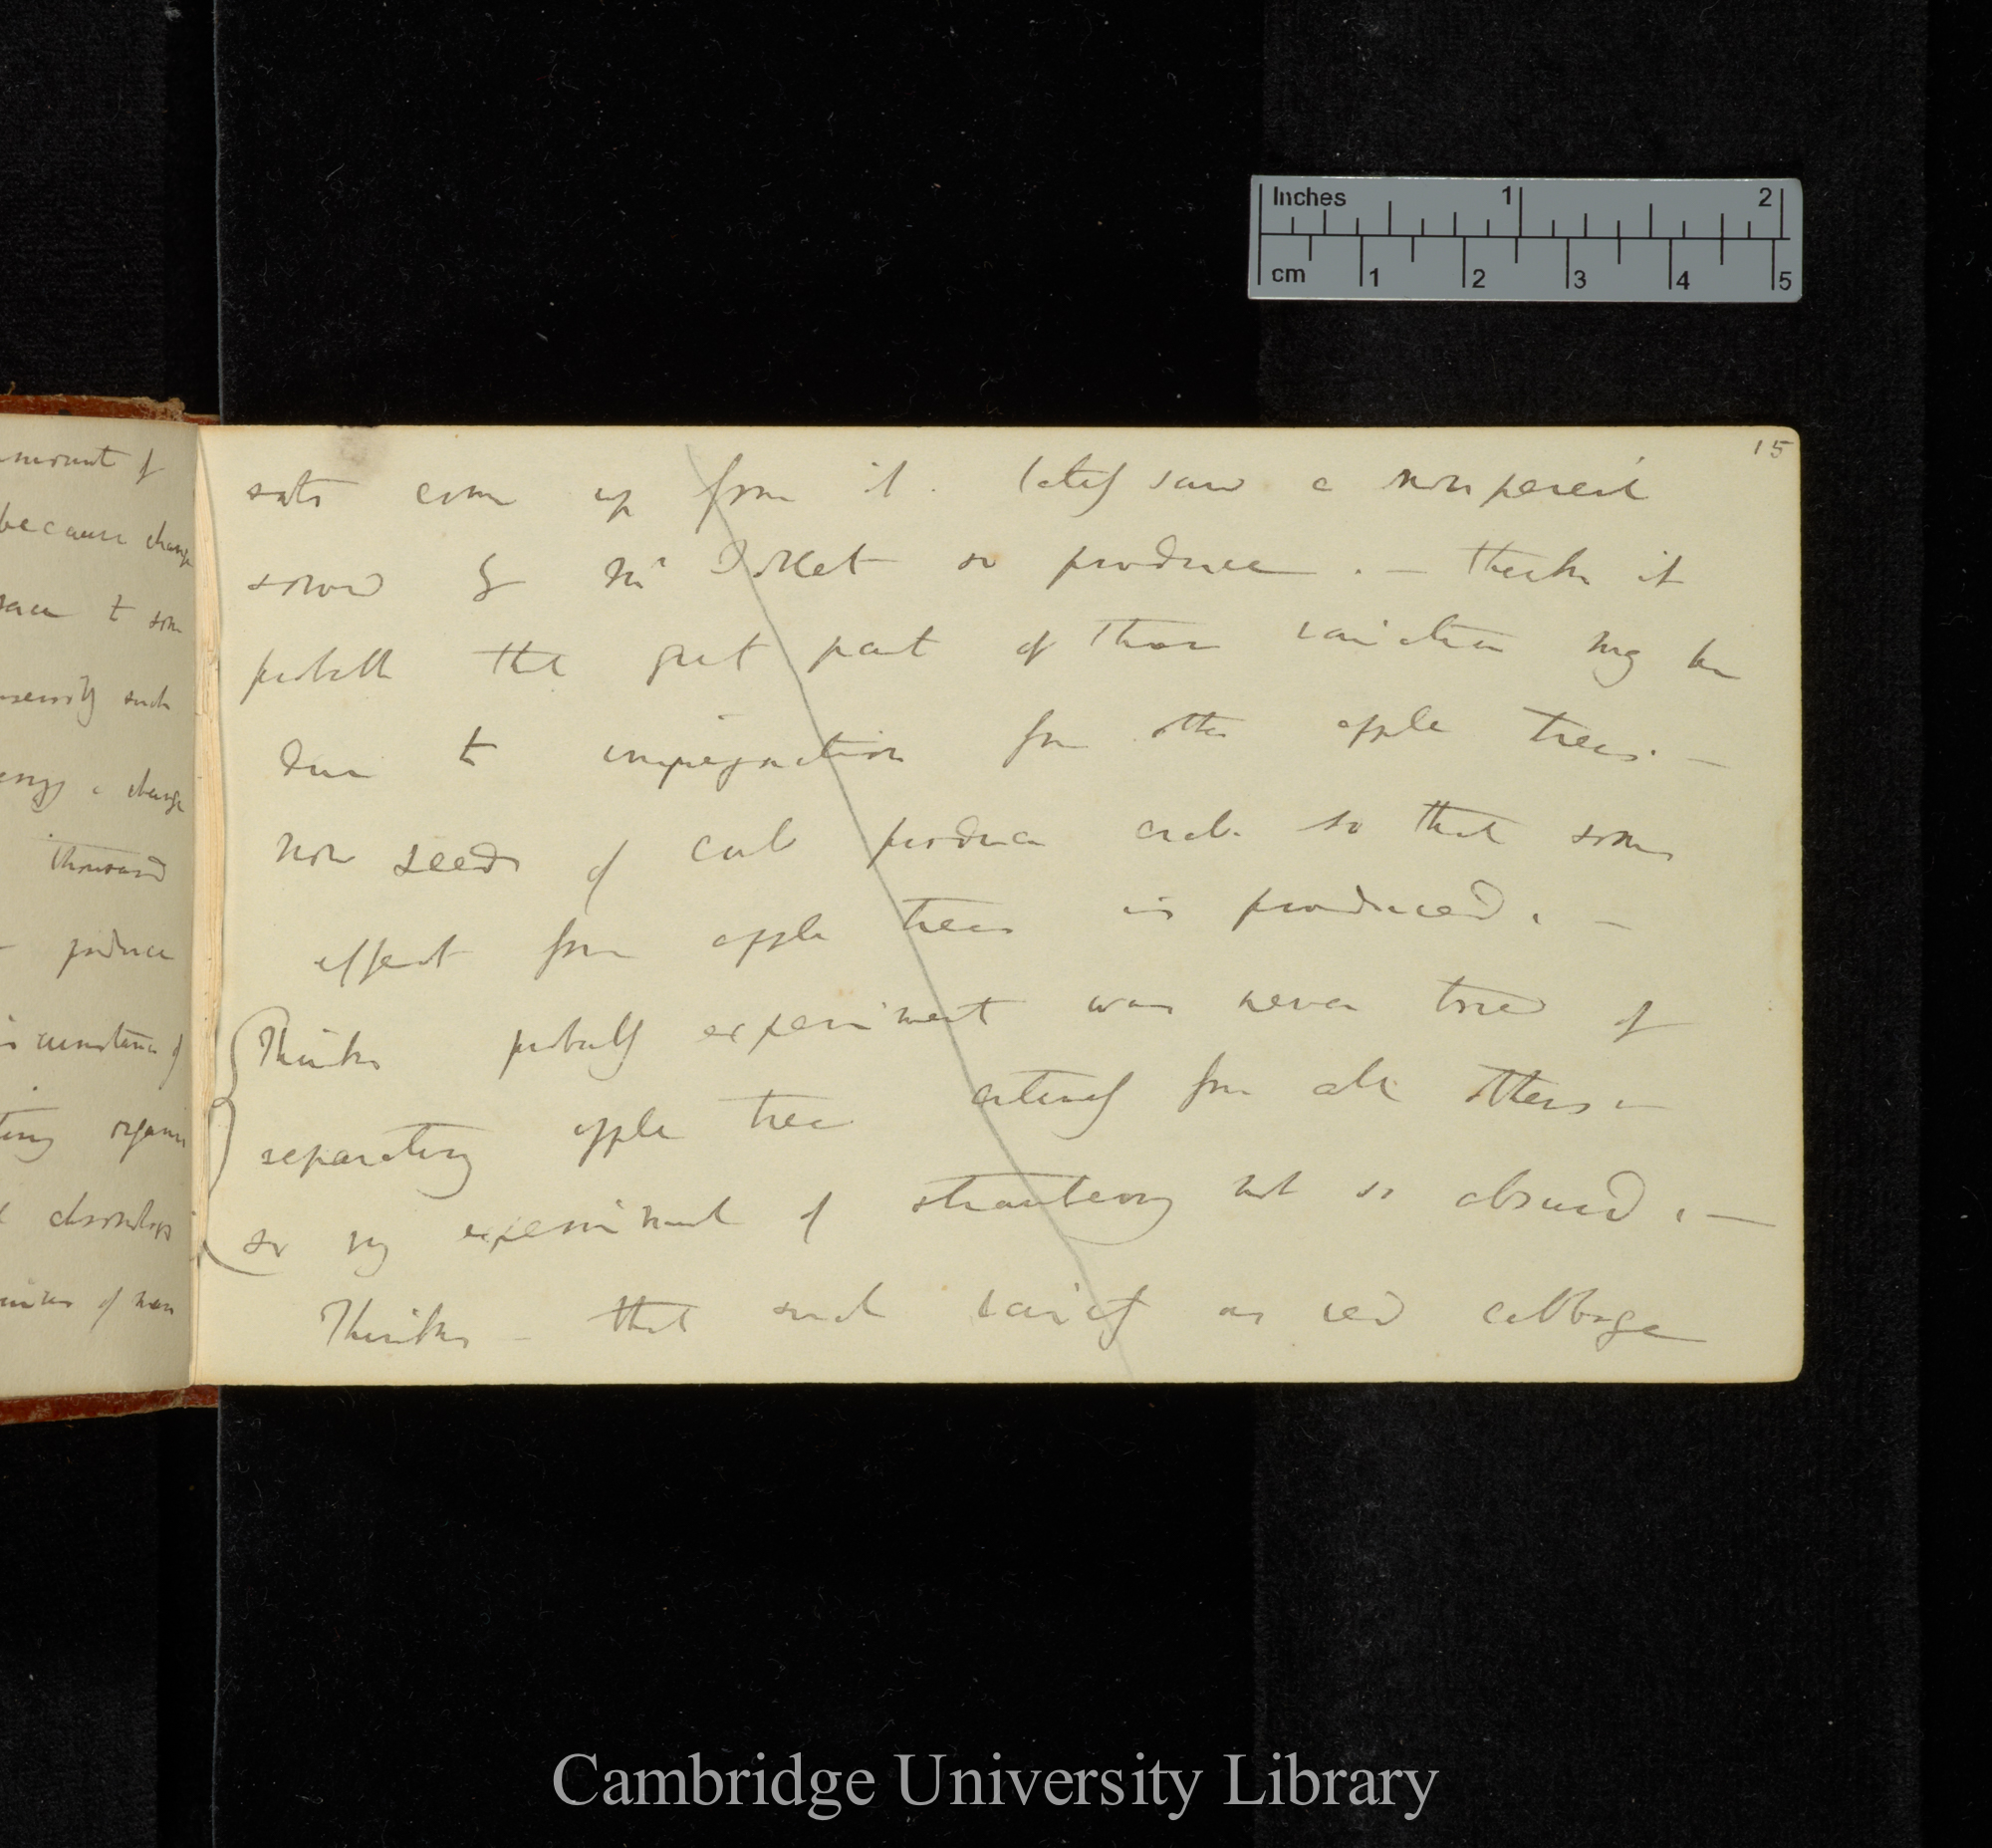 Inches 1 2
cm 1 2 3 4 5
15
amount of
because change
to some
such
a change
thousand
produce
circumstance of
organic
of man
sorts come up from it. lately saw a nonpareil
sowed by Mr so produce. — thinks it
probable the great part of these varieties may be
due to impregnation from other apple trees. —
now seeds of crab produce crabs so that some
effect from apple trees is produced. —
Thinks probably experiment was never tried of
separating apple tree entirely from all others —
so my experiment of strawberry not so absurd. —
Thinks — that such variety as red cabbage
Cambridge University Library